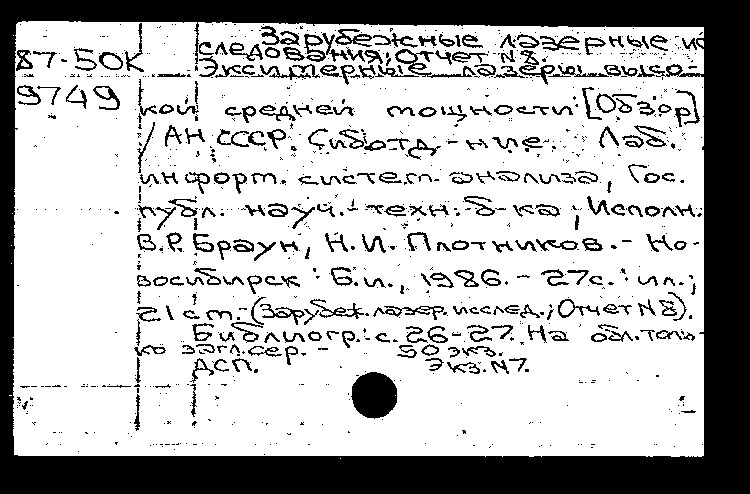 Зарубежные лазерные ис
следования; Отчет N 8.
87-50К
Эксимерные лазеры высо-
9749
кой средней мощности: [Обзор]
/ АН СССР. Сиб. отд-ние. Лаб.
информ. систем. анализа, Гос.
публ. науч.-техн. б-ка; Исполн.
В.Р. Браун, Н.И. Плотников. - Но-
восибирск: Б.и., 1986. - 27с.: ил.;
21 см. - (Зарубеж. лазер. исслед.; Отчет N 8).
Библиогр.: с. 26-27. На обл. толь-
ко загл. сер. - 50 экз.
ДСП. Экз. N7.